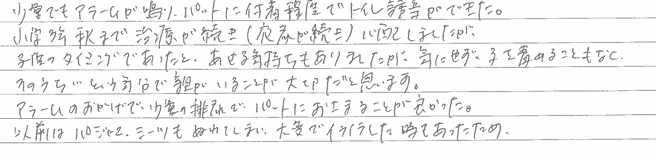 少量でもアラームが鳴り、パットに付着程度でトイレ誘導ができた。
小学3年秋まで治療が続き(夜尿が続き)心配しましたが、
子供のタイミングであったと、あせる気持ちもありましたが、気にせず、子を責めることもなく、
そのうち〃という気分で親がいることが大切だと思います。
アラームのおかげで少量の排尿で、パットにおさまることが良かった。
以前はパジャマ、シーツもぬれてしまい、大変でイライラした時もあったため、